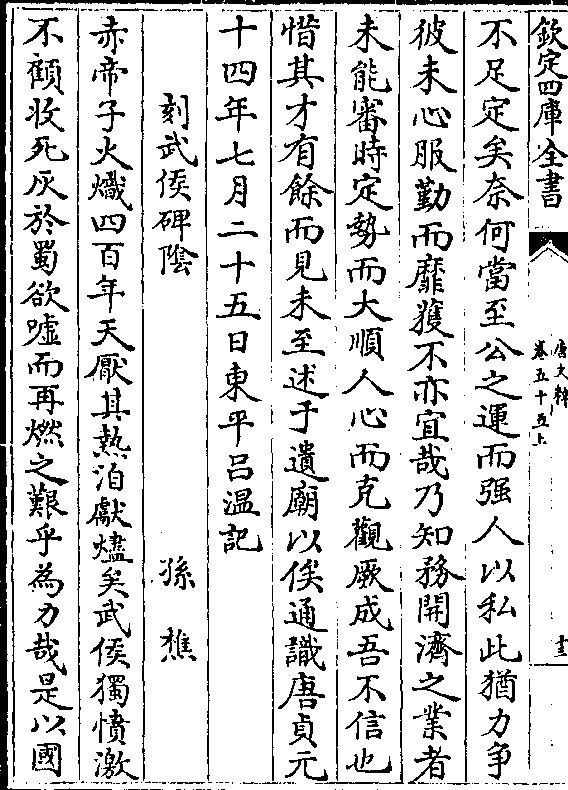 欽定四庫全書
唐文粹
卷五十五上
十三
不足定矣奈何當至公之運而强人以私此猶力争
彼未心服勤而靡獲不亦宜哉乃知務開濟之業者
未能審時定勢而大順人心而克觀厥成吾不信也
惜其才有餘而見未至述于遺廟以俟通識唐貞元
十四年七月二十五日東平吕温記
刻武侯碑隂 孫樵
赤帝子火熾四百年天厭其熱洎獻燼矣武侯獨憤激
不顧收死灰於蜀欲噓而再燃之艱乎為力哉是以國